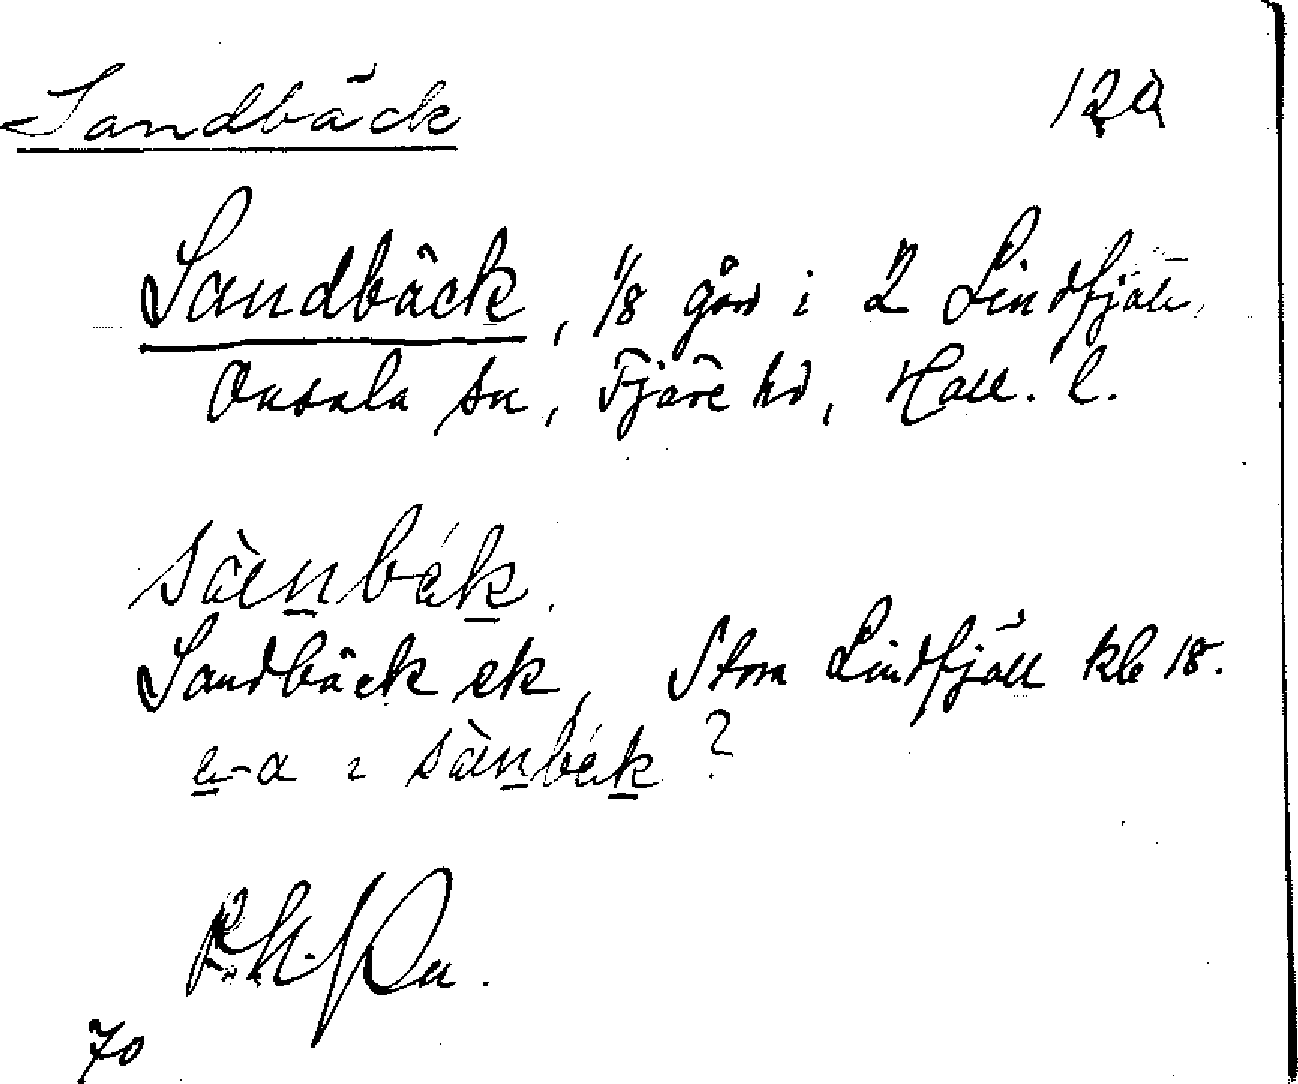 Sandbäck 12a
Sandbäck, 1/8 gård i 2 Lindfjäll,
Onsala sn, Fjäre hd, Hall. l.
sàenbák.
Sandbäck ek, Stora Lindfjäll kb 18.
a-a : sàenbák ?
70